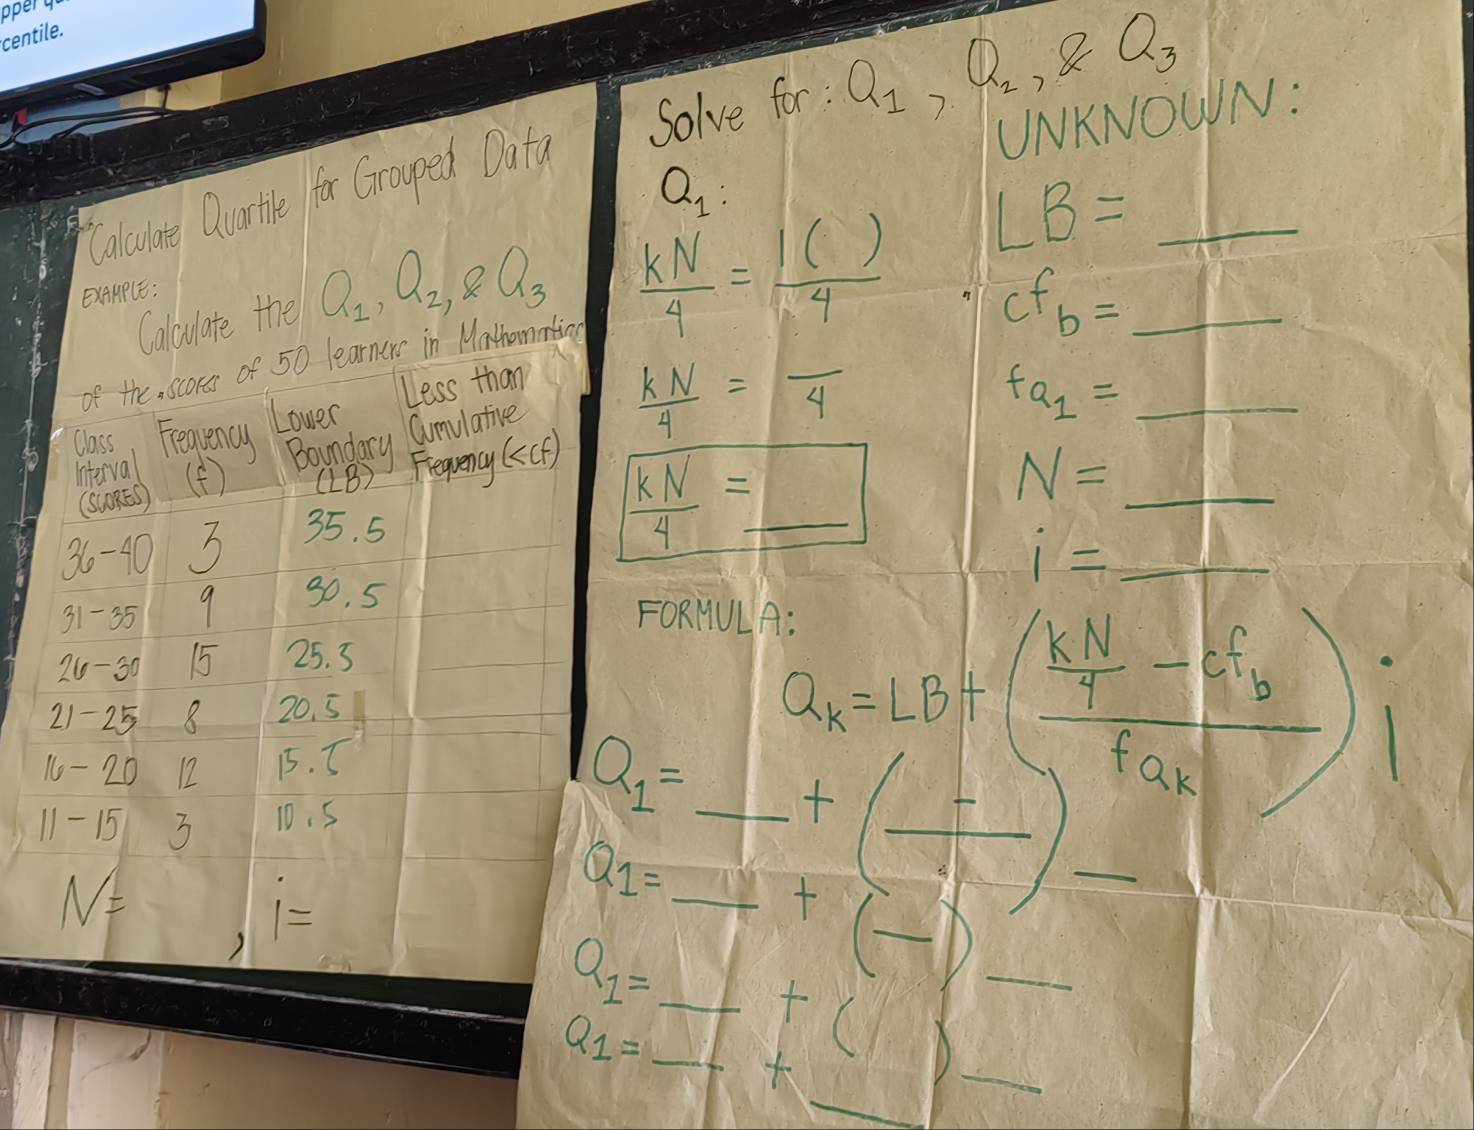 rcentile.
Calculate Quartile for Grouped Data
EXAMPLE:
Calculate the Q₁, Q₂, & Q₃
of the scores of 50 learners in Mathematics
Class Interval (SCORES) Frequency (f) Lower Boundary (LB) Less than Cumulative Frequency (<cf)
36-40 3 35.5
31-35 9 30.5
26-30 15 25.5
21-25 8 20.5
16-20 12 15.5
11-15 3 10.5
N= , i=
Solve for: Q₁, Q₂, & Q₃
Q₁:
kN/4 = 1( )/4
kN/4 = __/4
kN/4 = ____
UNKNOWN:
LB = ____
cf_b = ____
fQ₁ = ____
N = ____
i = ____
FORMULA:
Qₖ = LB + ((kN/4 - cf_b)/fQₖ) i
Q₁ = ___ + ( - /___) __
Q₁ = ___ + (__) ___
Q₁ = ___ + ( ) ___
Q₁ = ___ + ____